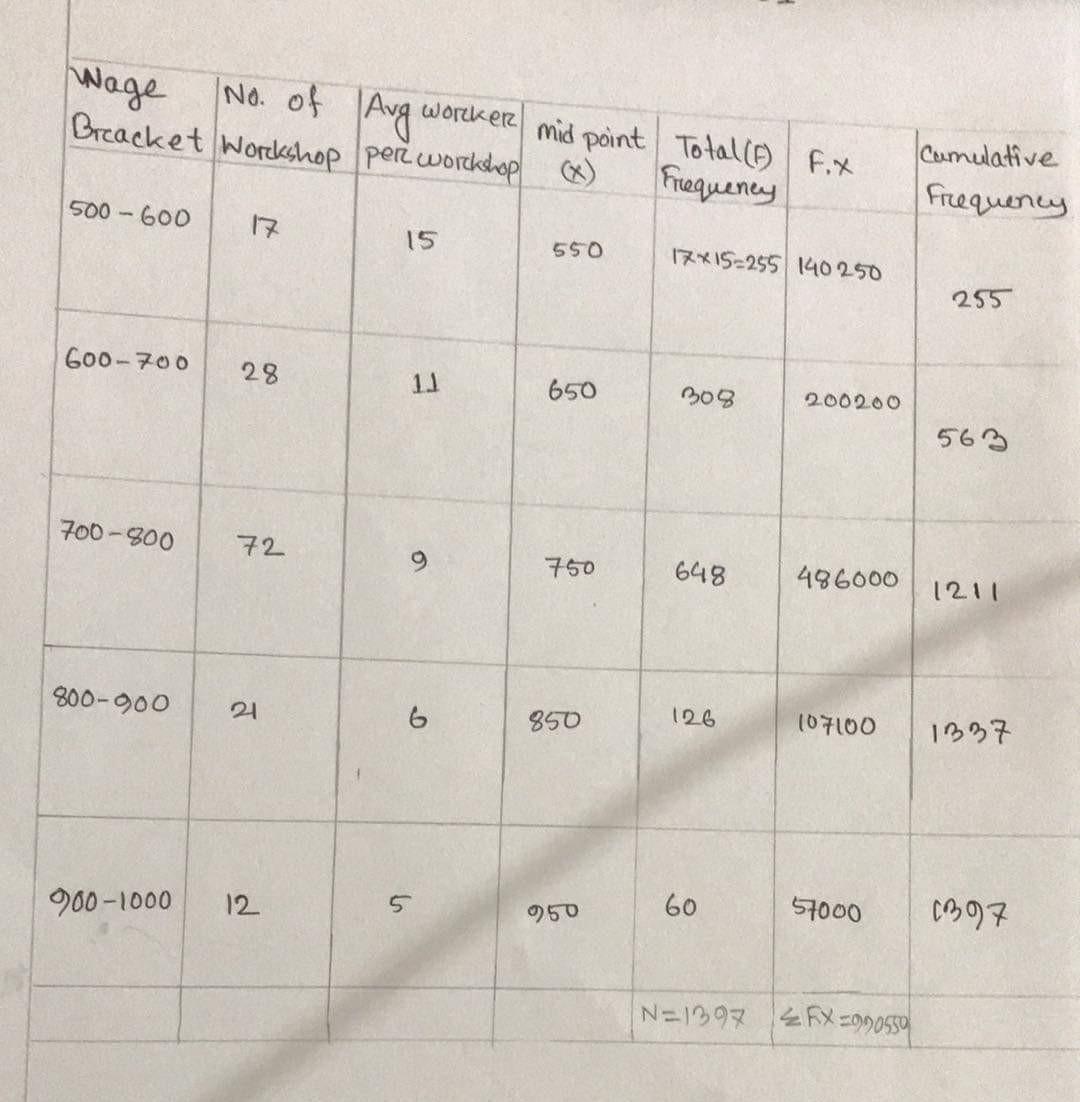 Wage Bracket | No. of Workshop | Avg worker per workshop | mid point (x) | Total (F) Frequency | F.x | Cumulative Frequency
500-600 | 17 | 15 | 550 | 17x15=255 | 140250 | 255
600-700 | 28 | 11 | 650 | 308 | 200200 | 563
700-800 | 72 | 9 | 750 | 648 | 486000 | 1211
800-900 | 21 | 6 | 850 | 126 | 107100 | 1337
900-1000 | 12 | 5 | 950 | 60 | 57000 | 1397
N=1397 | Σ F.X =990550